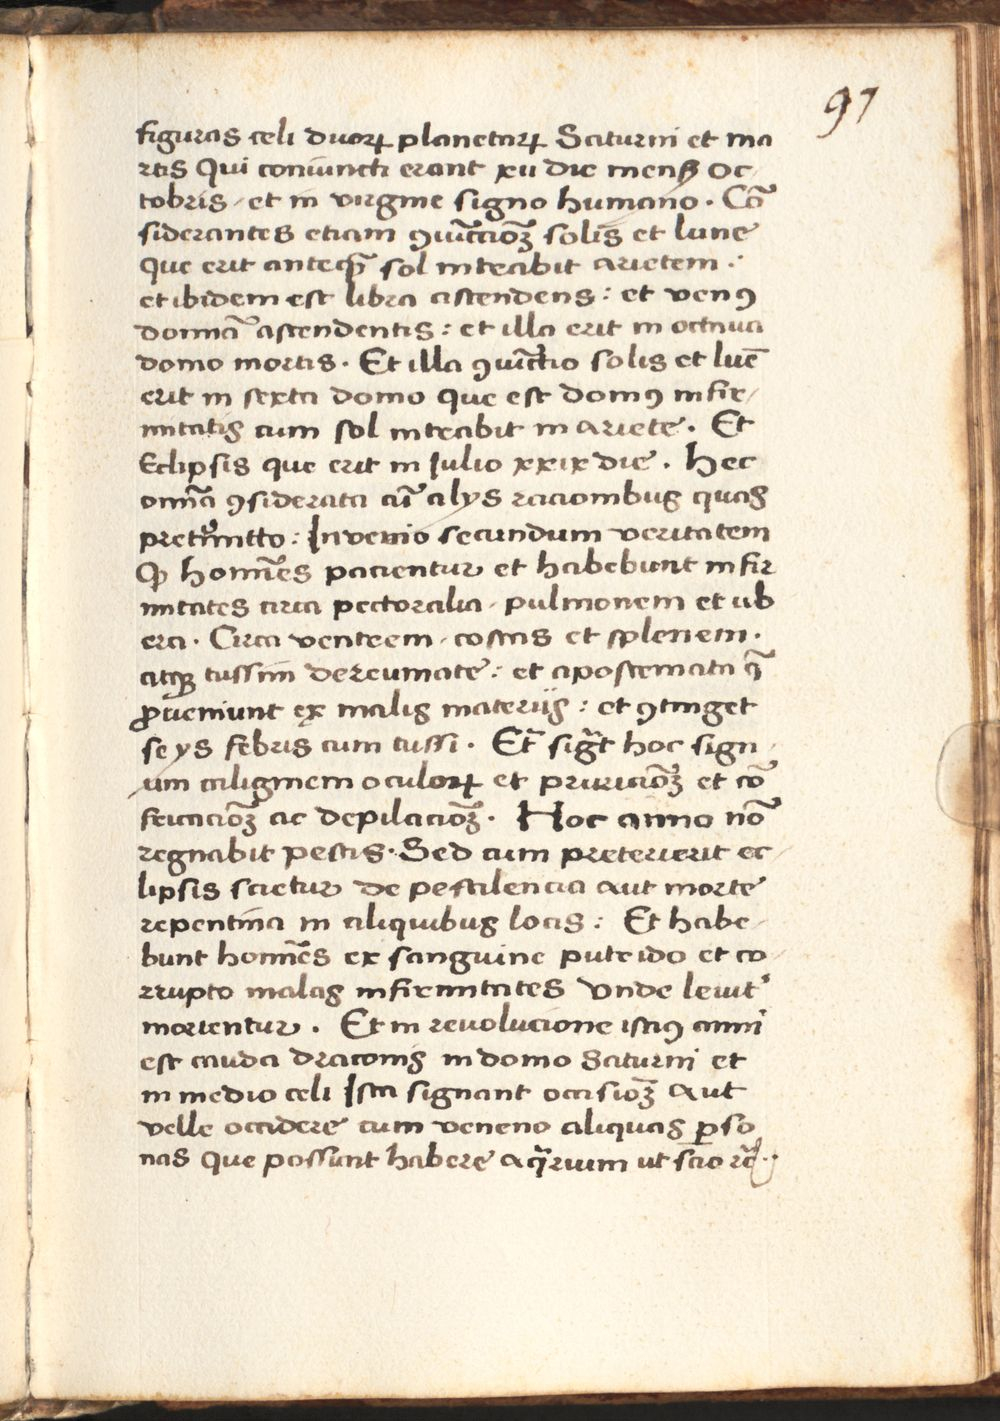 97
figuras celi duoꝝ planetaꝝ Saturni et ma
rtis Qui coniuncti erant xii die mensꝭ oc-
tobris. et in virgine signo humano. Cō
siderantes etiam ꝯiūccioꝫ solis et lune
que erit anteꝙ̄ sol intrabit arietem.
et ibidem est libra ascendens: et venꝰ
domīa ascendentis: et illa erit in octaua
domo mortis. Et illa ꝯiūctio solis et luē
erit in sexta domo que est domꝰ infir-
mitatis cum sol intrabit in ariete. Et
Eclipsis que erit in Iulio xxix die. Hec
omīa ꝯsiderata cū alys racionibus quas
pretermitto: Invenio secundum veritatem
ꝙ homīes pacientur et habebunt infir
mitates circa pectoralia. pulmonem et ub
era. Circa ventrem. costas et splenem.
atqꝫ tussim de reumate: et apostemata q̄
ꝓueniunt ex malis materiis: et ꝯtinget
se ys febris cum tussi. Et sigt hoc sign
um caliginem oculoꝝ et pruricioꝫ et cō
fricacioꝫ ac depilacioꝫ. Hoc anno nō
regnabit pestis. Sed cum preterierit ec-
lipsis scietur de pestilencia aut morte
repentina in aliquibus locis: Et habe-
bunt homīes ex sanguine putrido et co-
rrupto malas infirmitates Unde leuit
morientur. Et in reuolucione istiꝰ anni
est cauda draconis in domo Saturni et
in medio celi Ista signant occisioꝫ aut
velle occidere cum veneno aliquas ꝑso
nas que possunt habere aq̄rium ut scio rc̄.